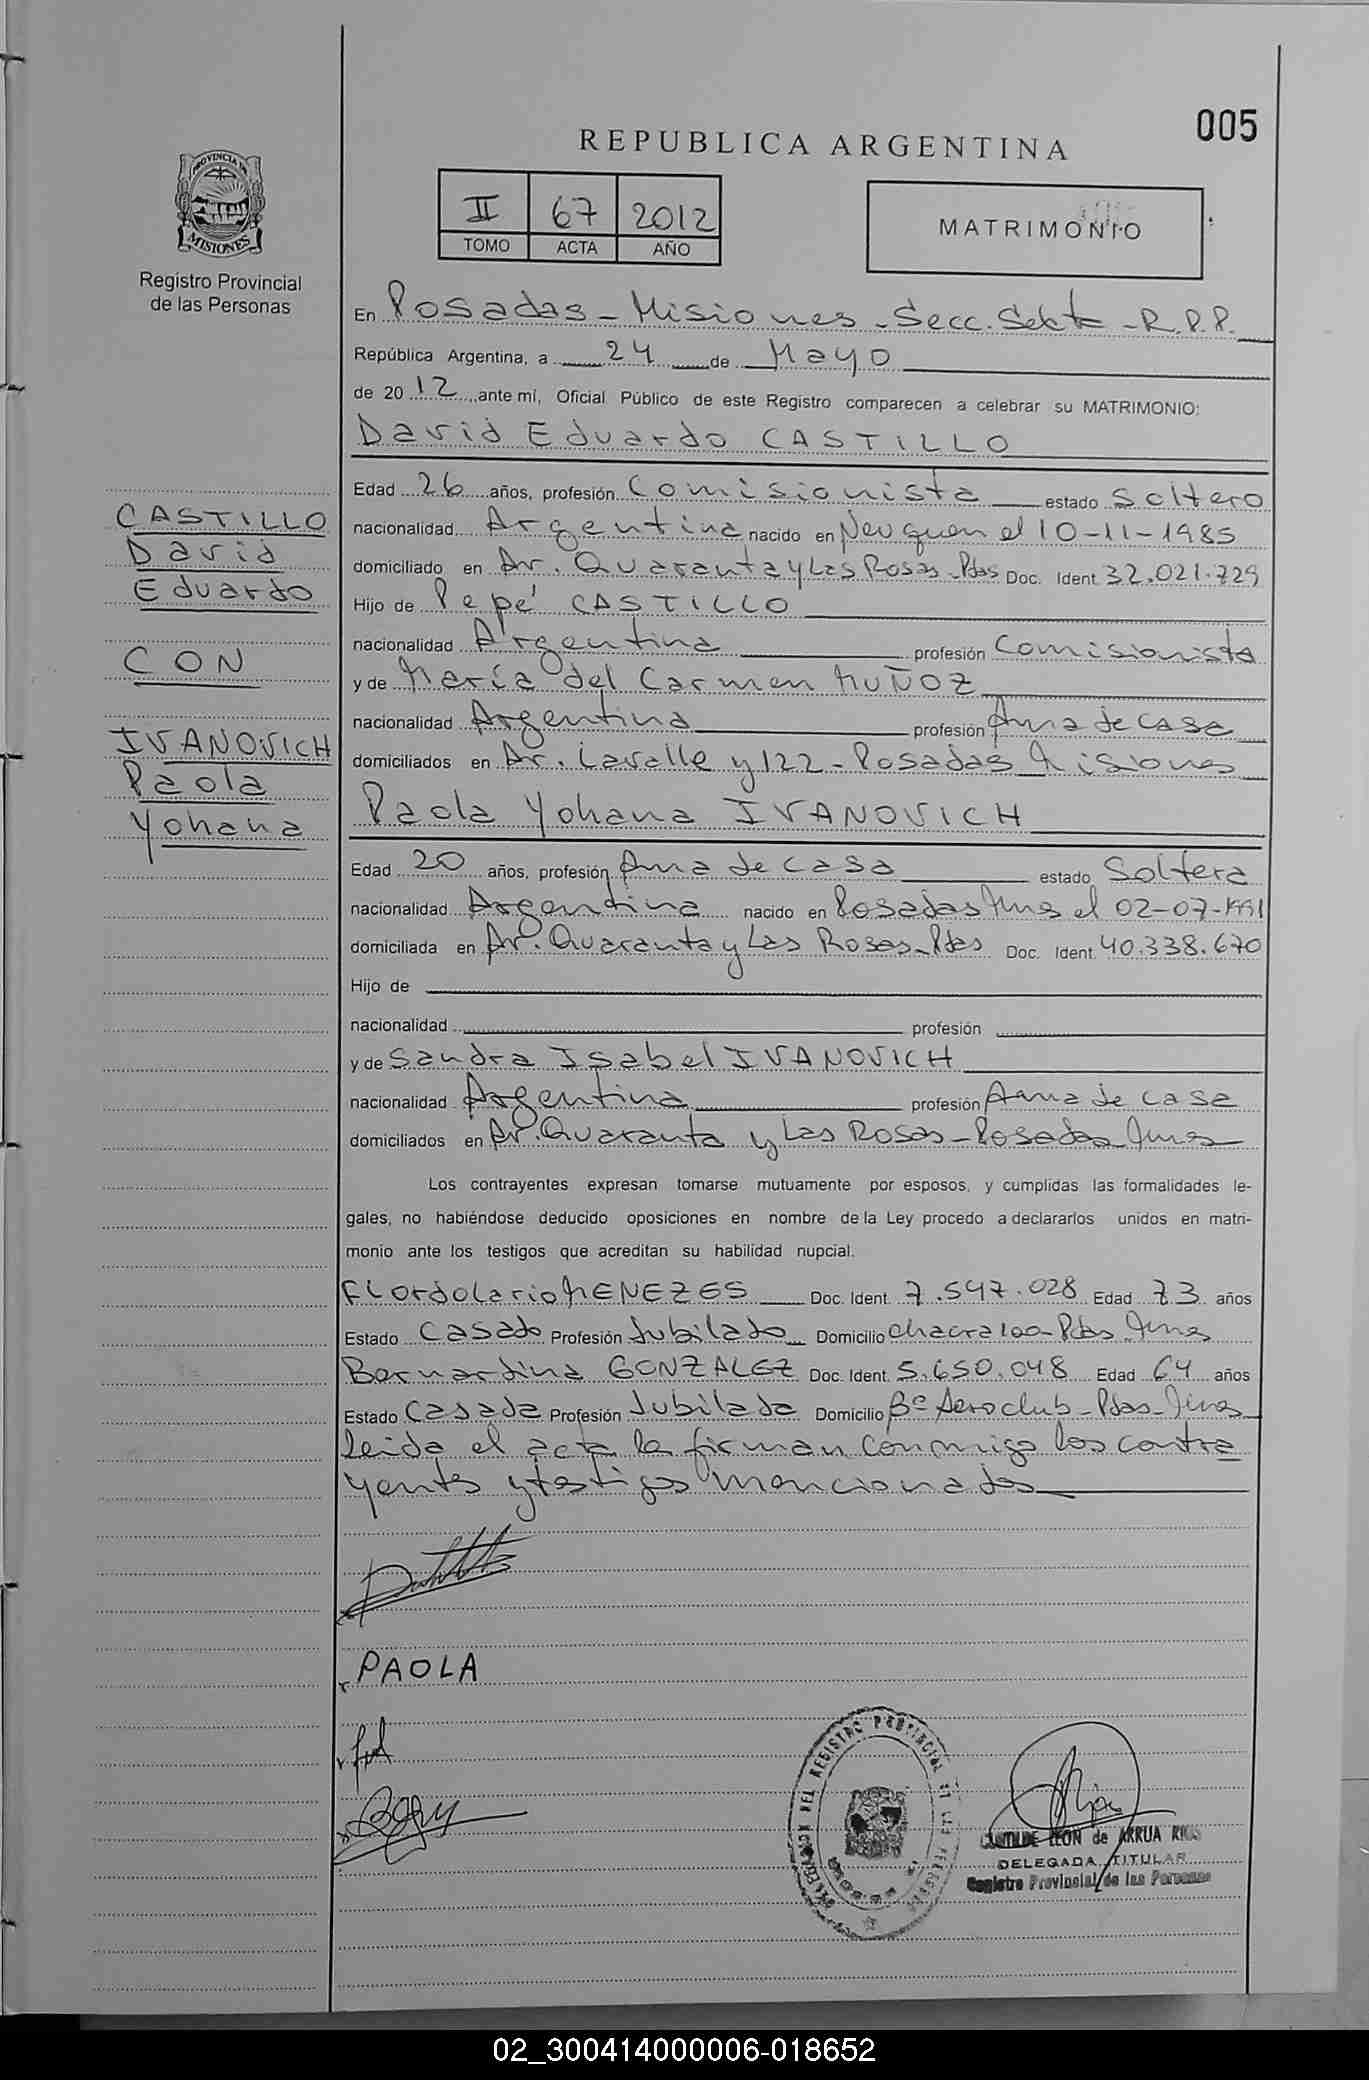 005
REPUBLICA ARGENTINA
II 67 2012
TOMO ACTA AÑO
MATRIMONIO
PROVINCIA DE
MISIONES
Registro Provincial
de las Personas
En Posadas - Misiones - Secc. Sexta - R.P.P.
República Argentina, a 24 de Mayo
de 2012, ante mí, Oficial Público de este Registro comparecen a celebrar su MATRIMONIO:
David Eduardo CASTILLO
Edad 26 años, profesión Comisionista estado Soltero
nacionalidad Argentina nacido en Neuquen el 10-11-1985
domiciliado en Av. Quaranta y Las Rosas - Pdas Doc. Ident. 32.021.729
Hijo de Pepé CASTILLO
nacionalidad Argentina profesión Comisionista
y de María del Carmen MUÑOZ
nacionalidad Argentina profesión Ama de casa
domiciliados en Av. Lavalle y 122 - Posadas Misiones
Paola Yohana IVANOVICH
Edad 20 años, profesión Ama de casa estado Soltera
nacionalidad Argentina nacido en Posadas Mnes el 02-07-1991
domiciliada en Av. Quaranta y Las Rosas - Pdas Doc. Ident. 40.338.670
Hijo de
nacionalidad profesión
y de Sandra Isabel IVANOVICH
nacionalidad Argentina profesión Ama de casa
domiciliados en Av. Quaranta y Las Rosas - Posadas Mnes
Los contrayentes expresan tomarse mutuamente por esposos, y cumplidas las formalidades le-
gales, no habiéndose deducido oposiciones en nombre de la Ley procedo a declararlos unidos en matri-
monio ante los testigos que acreditan su habilidad nupcial.
Flordolario MENEZES Doc. Ident. 7.547.028 Edad 73 años
Estado Casado Profesión Jubilado Domicilio Chacra 100 - Pdas Mnes
Bernardina GONZALEZ Doc. Ident. 5.650.048 Edad 64 años
Estado Casada Profesión Jubilada Domicilio Bº Aeroclub - Pdas - Mnes
leida el acta la firman conmigo los contra
yentes y testigos mencionados
CASTILLO
David
Eduardo
CON
IVANOVICH
Paola
Yohana
PAOLA
DELEGACION DEL REGISTRO PROVINCIAL DE LAS PERSONAS
LEON de ARRUA RIOS
DELEGADA TITULAR
Registro Provincial de las Personas
02_300414000006-018652